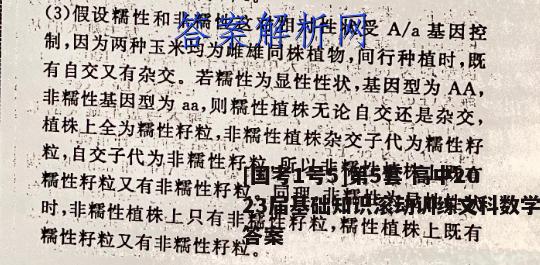 (3)假设糯性和非
制,因为两种玉米均为雌雄同株植物,间行种植时,既
有自交又有杂交。若糯性为显性性状,基因型为 AA,
非糯性基因型为 aa,则糯性植株无论自交还是杂交,
植株上全为糯性籽粒,非糯性植株杂交子代为糯性籽
粒,自交子代为非糯性籽粒,所以非糯性植株
糯性籽粒又有非糯性籽粒
时,非糯性植株上只有非糯性籽粒,糯性植株上既有
糯性籽粒又有非糯性籽粒。
受 A/a 基因控
答案解析网
[国考1号5]第5套 高中20
23届基础知识滚动训练文科数学
答案